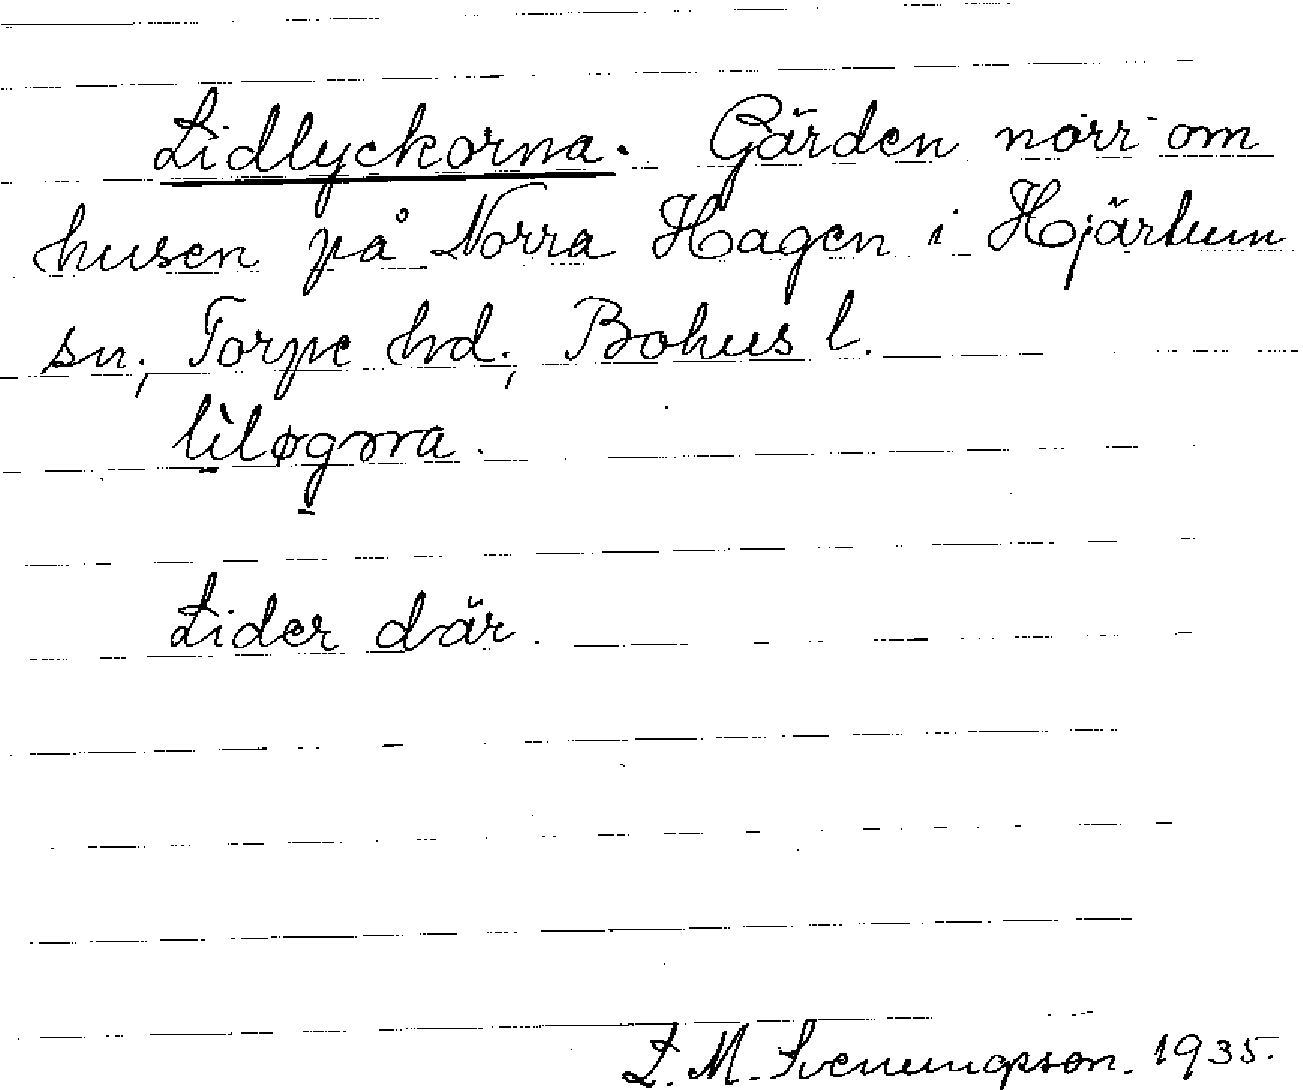 Lidlyckorna. Gärden norr om
husen på Norra Hagen i Hjärtum
sn; Torpe hd; Bohus l.
lìløgɔrra.
Lider där.
L. M. Svenungsson. 1935.